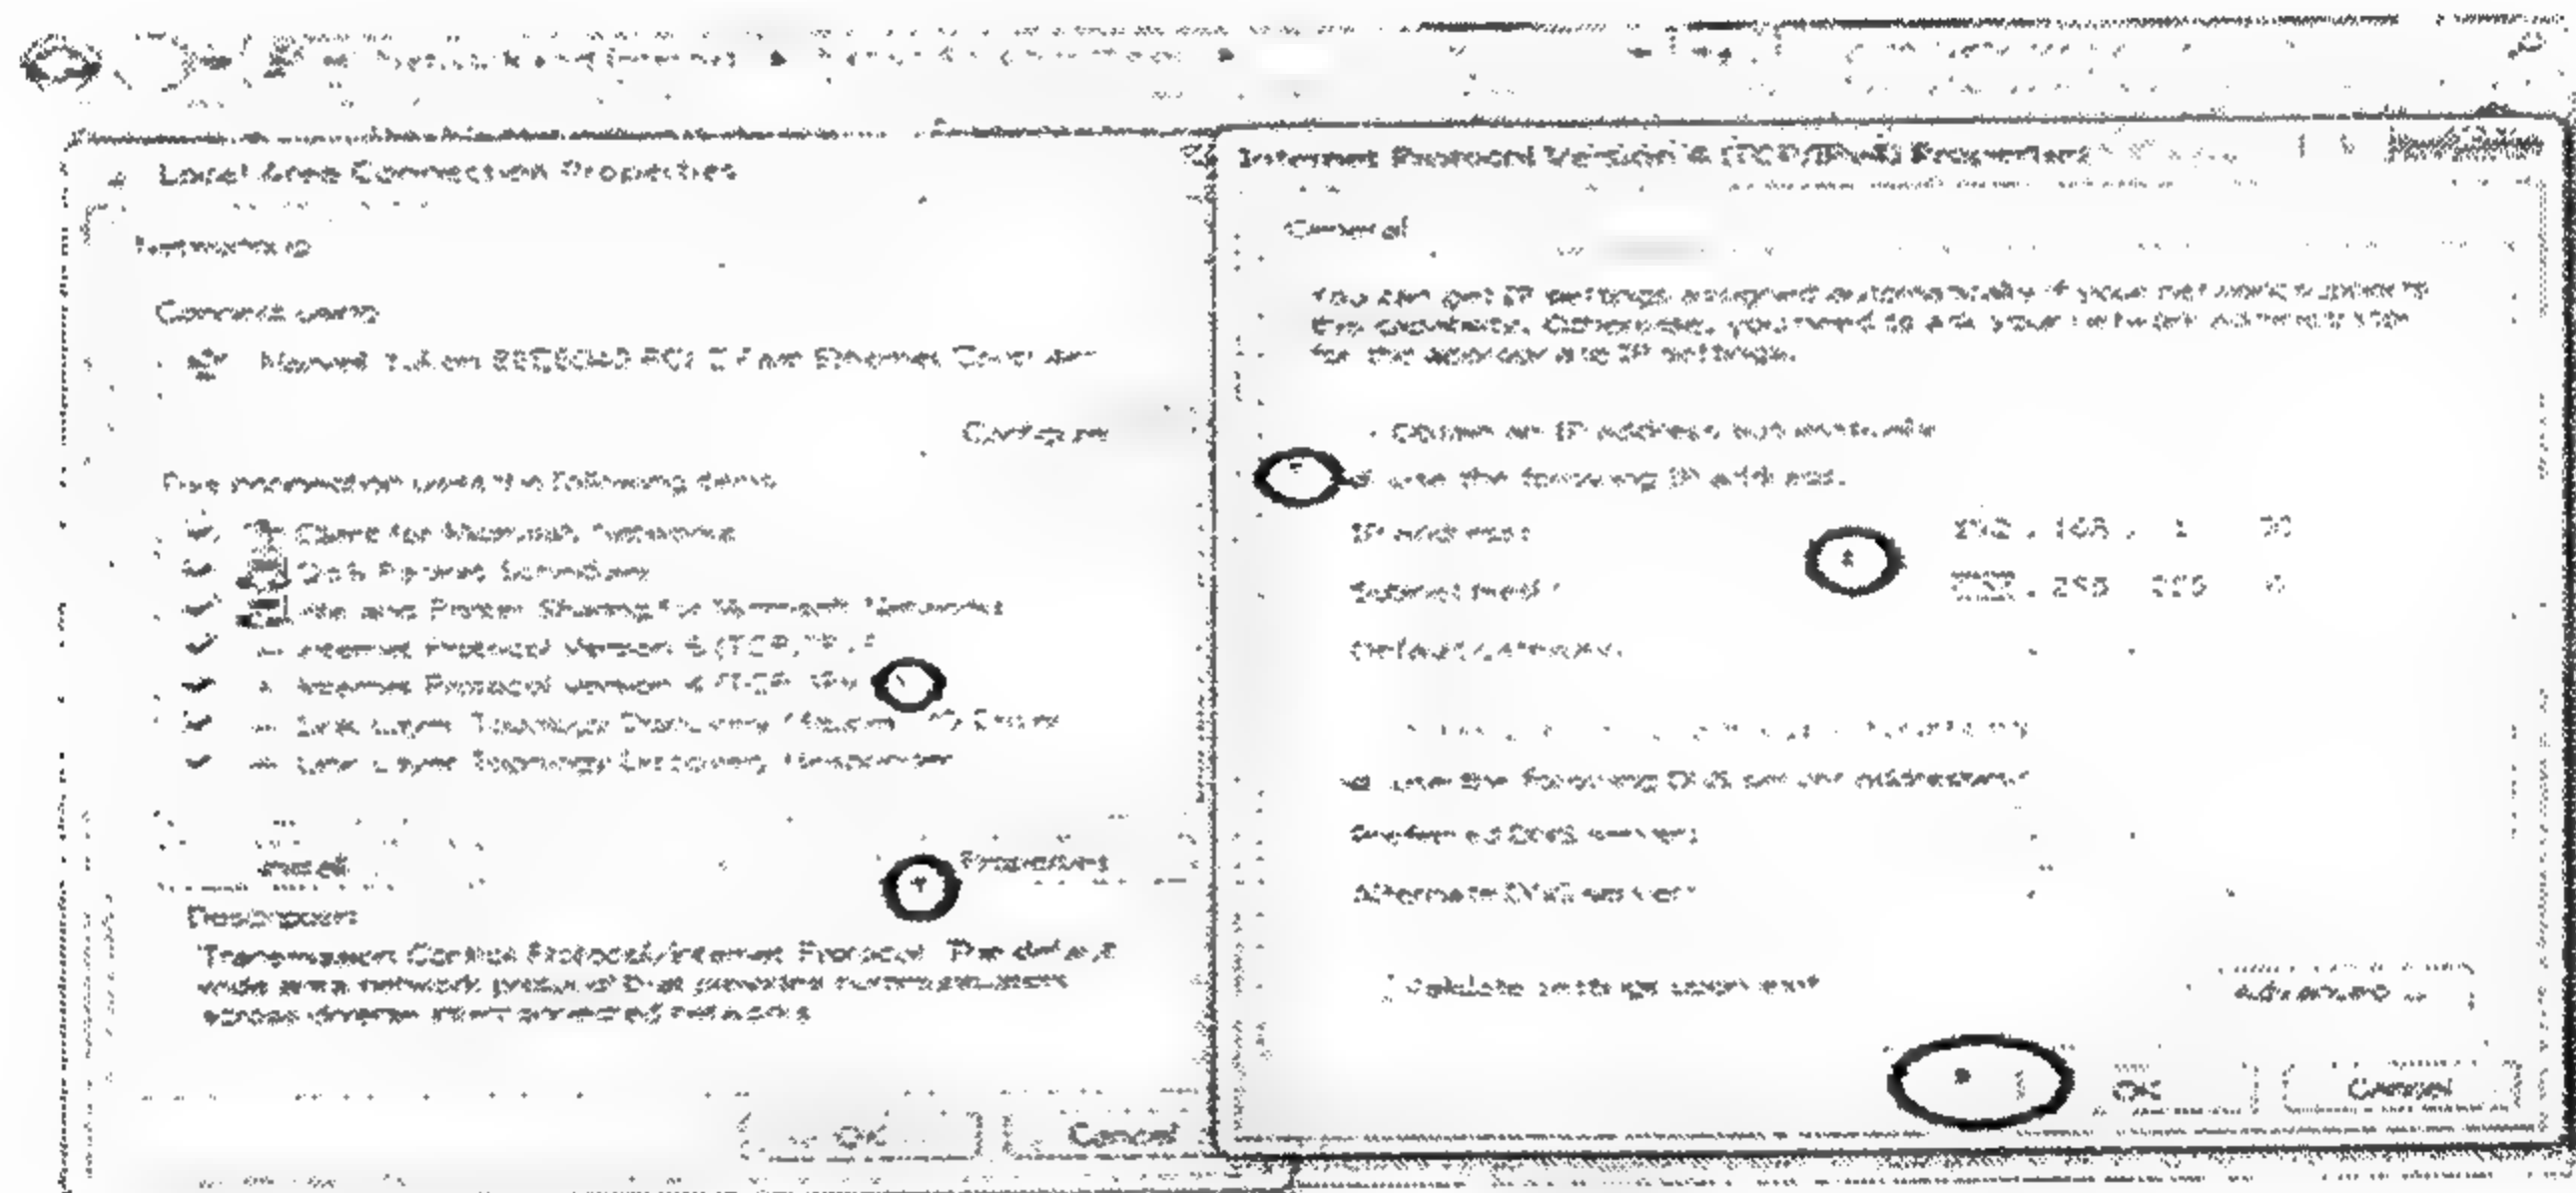 Network and Internet
Local Area Connection Properties
Networking
Connect using
Marvell Yukon PCI-E Fast Ethernet Controller
Configure
This connection uses the following items
Client for Microsoft Networks
QoS Packet Scheduler
File and Printer Sharing for Microsoft Networks
Internet Protocol Version 6 (TCP/IP
Internet Protocol Version 4 (TCP/IPv
Link Layer Topology Discovery Mapper I/O Driver
Link Layer Topology Discovery Responder
Install
Properties
Description
Transmission Control Protocol/Internet Protocol. The default
wide area network protocol that provides communication
across diverse interconnected networks
OK
Cancel
Internet Protocol Version 4 (TCP/IPv4) Properties
General
You can get IP settings assigned automatically if your network supports
this capability. Otherwise, you need to ask your network administrator
for the appropriate IP settings.
Obtain an IP address automatically
Use the following IP address:
IP address: 192 . 168 . 1
Subnet mask: 255 . 255 255 0
Default gateway:
Use the following DNS server addresses:
Preferred DNS server:
Alternate DNS server:
Validate settings upon exit
Advanced
OK
Cancel